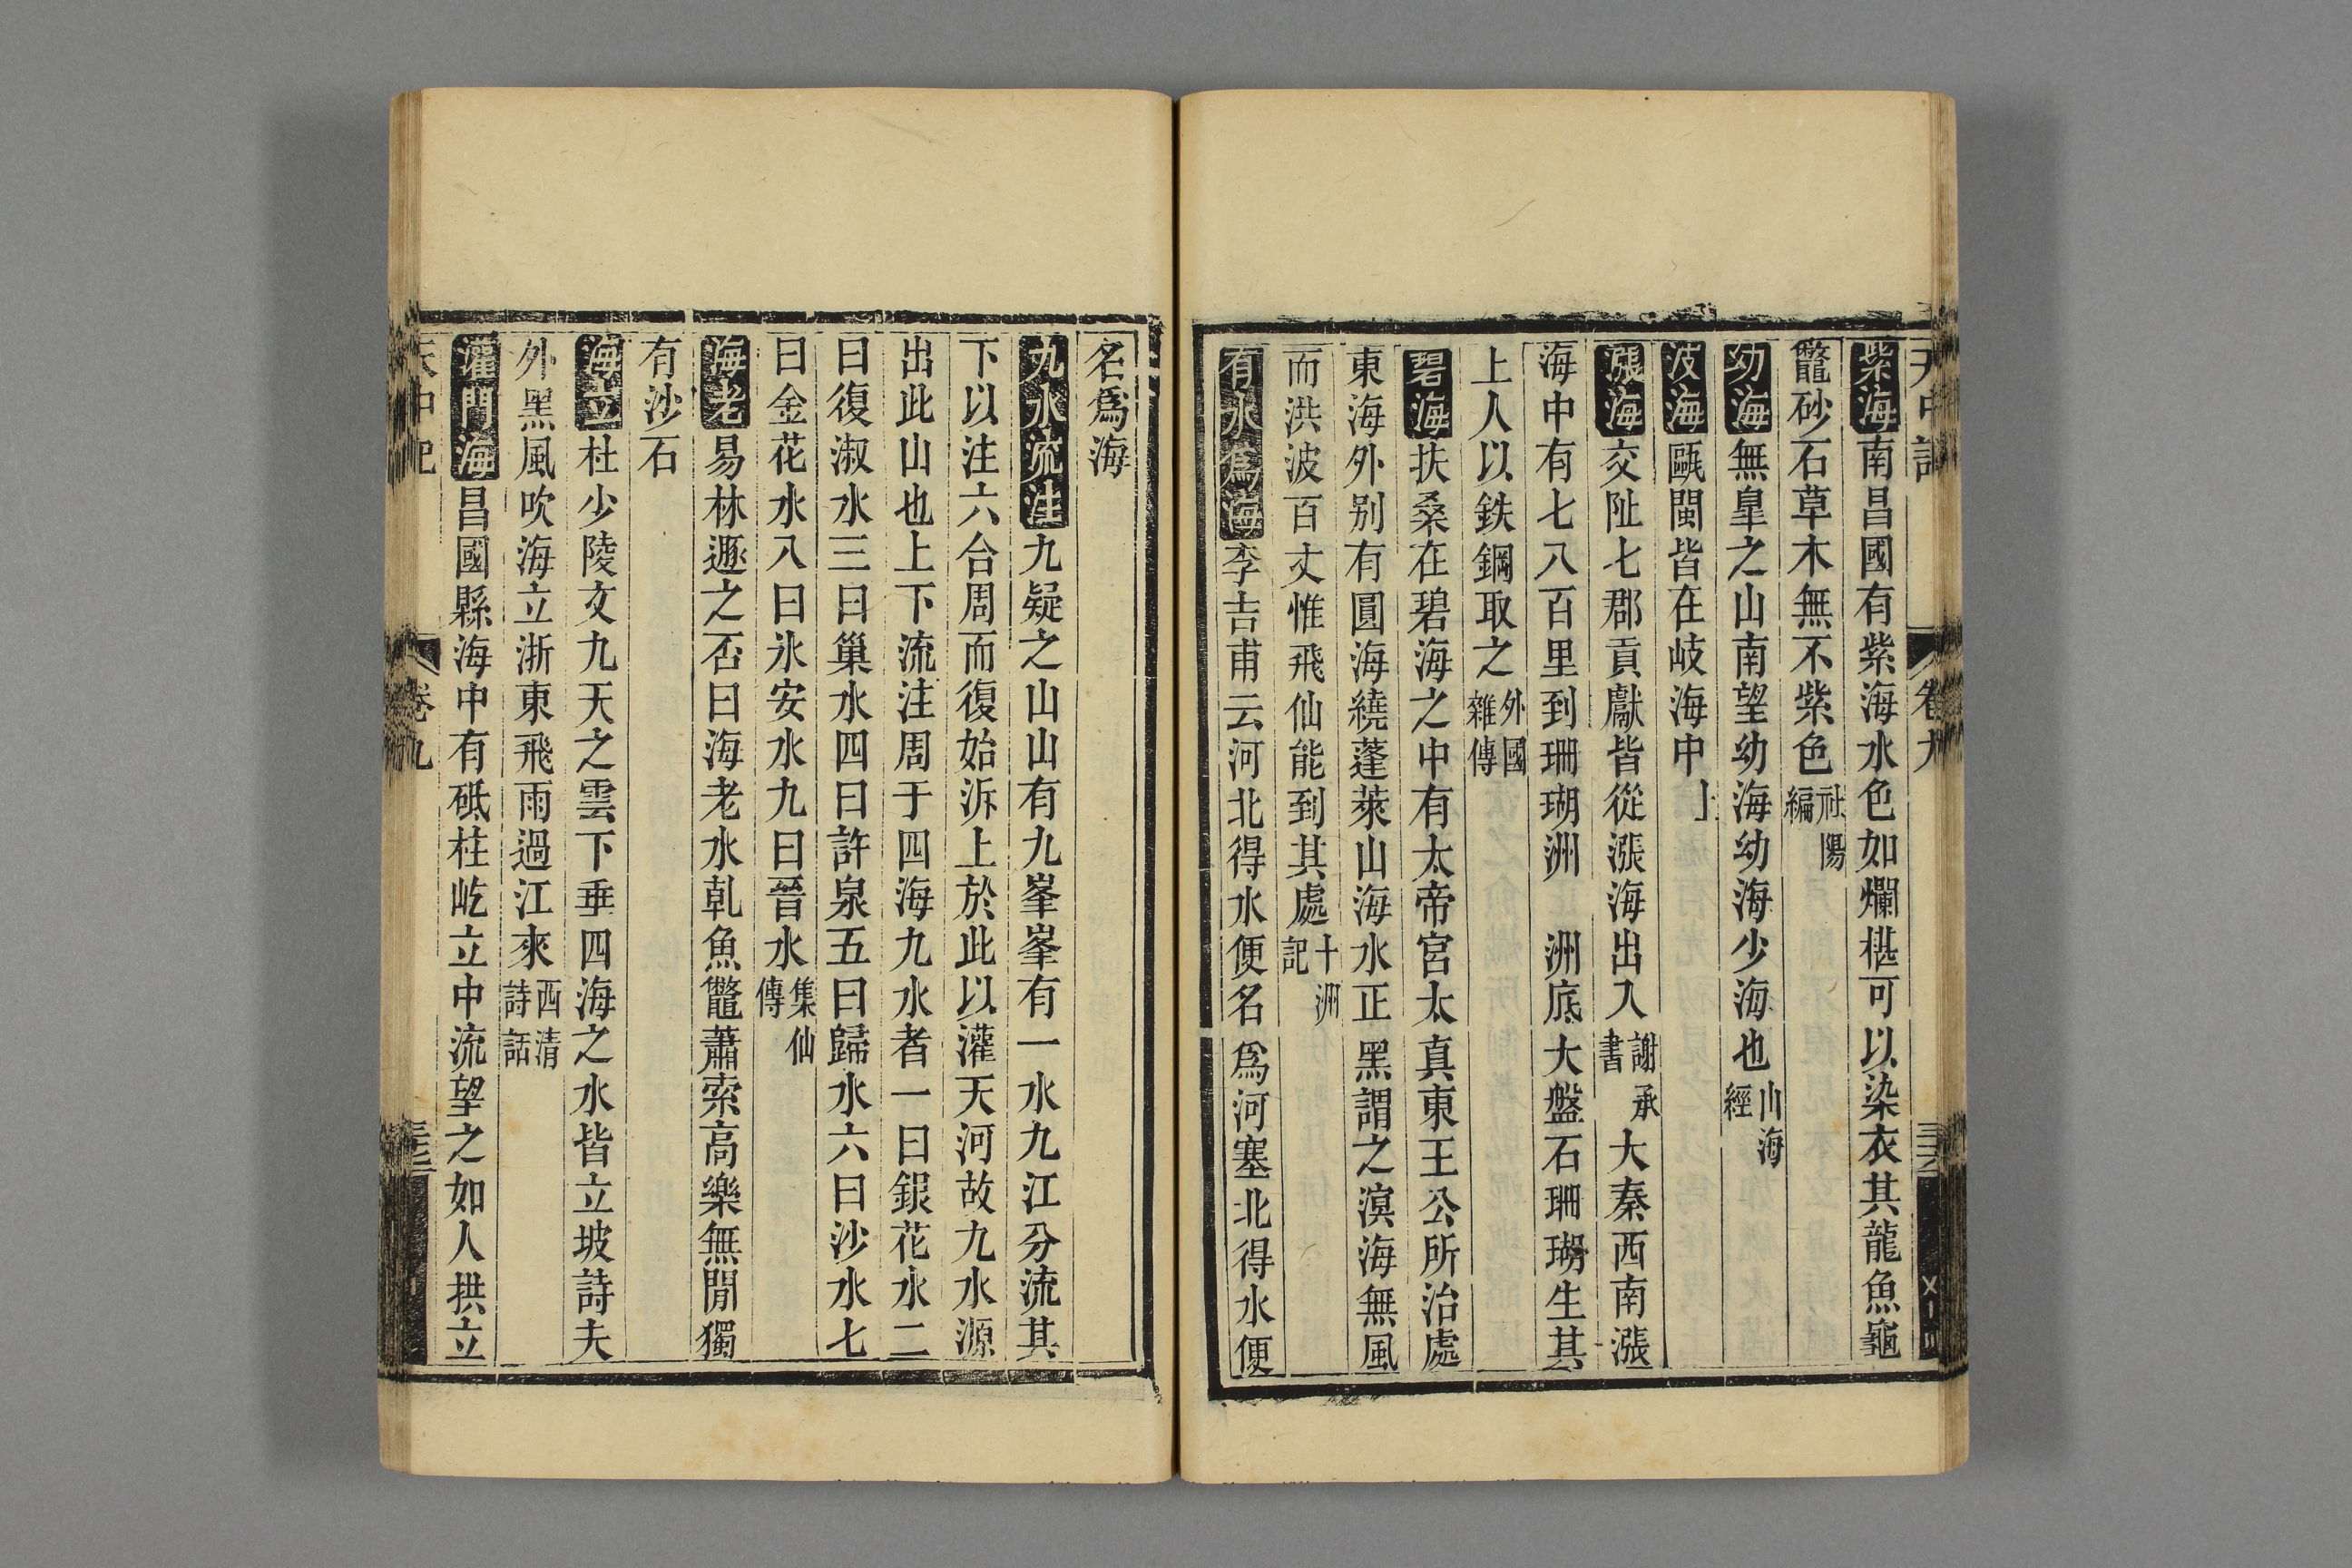 紫海南昌國有紫海水色如爛椹可以染衣其龍魚龜
鼈砂石草木無不紫色杜陽編
幼海無臯之山南望幼海幼海少海也山海經
波海甌閩皆在岐海中上
漲海交阯七郡貢獻皆從漲海出入謝承書大秦西南漲
海中有七八百里到珊瑚洲洲底大盤石珊瑚生其
上人以鉄鋼取之外國雜傳
碧海扶桑在碧海之中有太帝宮太真東王公所治處
東海外别有圓海繞蓬萊山海水正黑謂之溟海無風
而洪波百丈惟飛仙能到其處十洲記
有水爲海李吉甫云河北得水便名爲河塞北得水便
名爲海
九水流注九疑之山山有九峯峯有一水九江分流其
下以注六合周而復始泝上於此以灌天河故九水源
出此山也上下流注周于四海九水者一曰銀花水二
曰復淑水三曰巢水四曰許泉五曰歸水六曰沙水七
曰金花水八曰氷安水九曰晉水集仙傳
海老易林遯之否曰海老水乹魚鼈蕭索高樂無閒獨
有沙石
海立杜少陵文九天之雲下垂四海之水皆立坡詩夫
外黑風吹海立浙東飛雨過江來西清詩話
灌門海昌國縣海中有砥柱屹立中流望之如人拱立
天中記
卷九